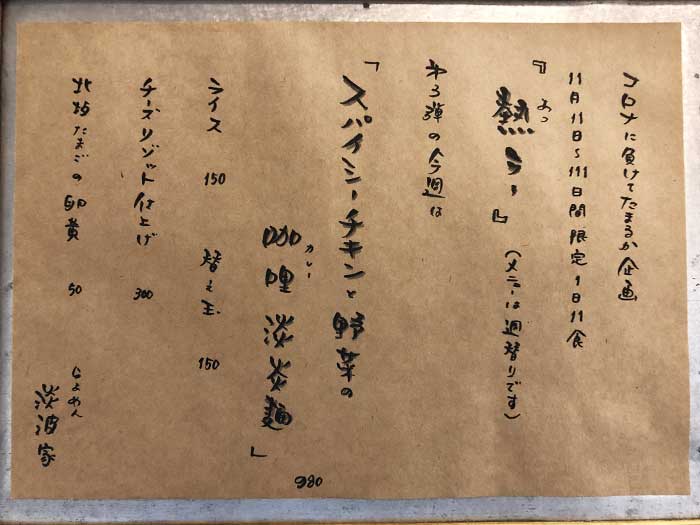 コロナに負けてたまるか企画
11月11日〜111日間限定1日11食
『熱ラー』(メニューは週替りです)
あつ
第3弾の今週は
「スパイシーチキンと野菜の
咖哩淡炎麺」
カレー
980
ライス 150 替え玉 150
チーズリゾット仕上げ 300
北坂たまごの卵黄 50
らぁめん
淡波家